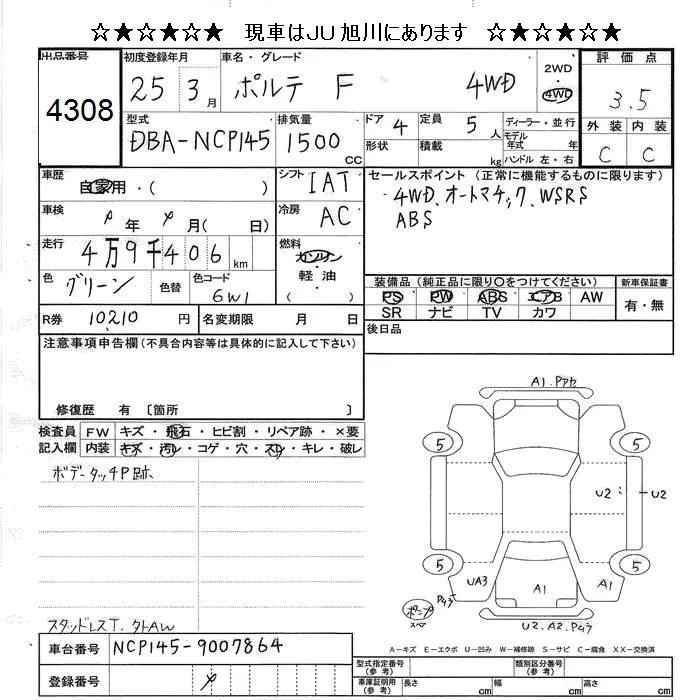 ☆★☆★☆★☆ 現車はJU旭川にあります ☆★☆★☆★☆
出品番号 初度登録年月 車名・グレード 2WD 評価点
4308 25 3月 ポルテ F 4WD ・4WD 3.5
型式 排気量 ドア 4 定員 5人 ディーラー・並行 外装 内装
DBA-NCP145 1500 cc 形状 積載 kg モデル年式 年 ハンドル 左・右 C C
車歴 自家用・( ) シフト IAT セールスポイント (正常に機能するものに限ります)
4WD、オートマチック、WSRS
ABS
車検 年 月( 日) 冷房 AC
走行 4万9千406km 燃料 ガソリン・軽油 ( )
色 グリーン 色替 色コード 6W1
装備品 (純正品に限り○をつけてください) 新車保証書
PS PW ABS エアB AW 有・無
SR ナビ TV カワ
R券 10210 円 名変期限 月 日 後日品
注意事項申告欄 (不具合内容等は具体的に記入して下さい)
修復歴 有 〔箇所 〕
検査員記入欄 FW キズ・飛石・ヒビ割・リペア跡・×要
内装 キズ・汚レ・コゲ・穴・スレ・キレ・破レ
ボデータッチP跡
A1.Pアセ
5 5
U2 U2
5 5
UA3 A1 A1
スタッドレスT.タトAW
U2.A2.Pキズ
A-キズ E-エクボ U-凹み W-補修跡 S-サビ C-腐食 XX-交換済
車台番号 NCP145-9007864
型式指定番号(参考) 類別区分番号(参考)
登録番号
車庫証明用(参考) 長さ cm 幅 cm 高さ cm